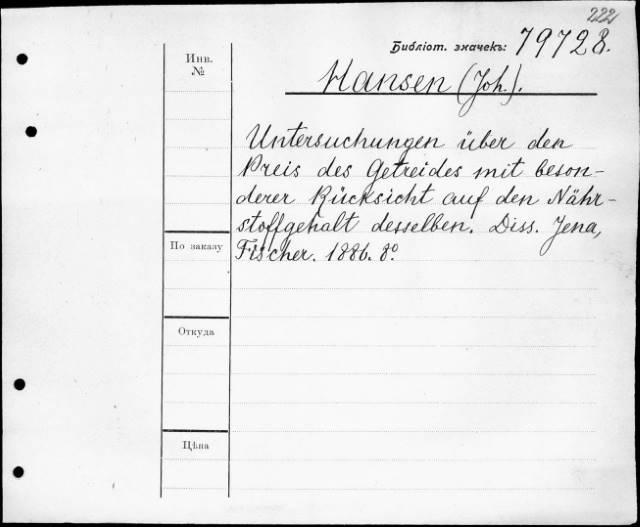 222
Библіот. значекъ: 79728.
Инв.
№
Hansen (Joh.).
Untersuchungen über den
Preis des Getreides mit beson-
derer Rücksicht auf den Nähr-
stoffgehalt desselben. Diss. Jena,
Fischer. 1886. 8°.
По заказу
Откуда
Цѣна